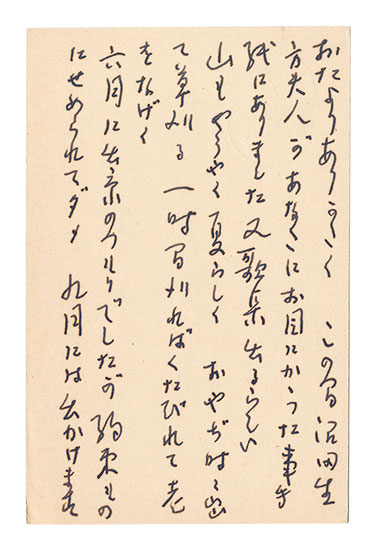 おたよりありがたく この間沼田生
方夫人があなたにお目にかかった事手
紙にありました 又歌集出るらしい
山もやうやく夏らしく おやぢ時々出
て草刈る 一時間刈ればくたびれて老
をなげく
六月に出京のつもりでしたが 約束もの
にせめられてダメ 九月には出かけます